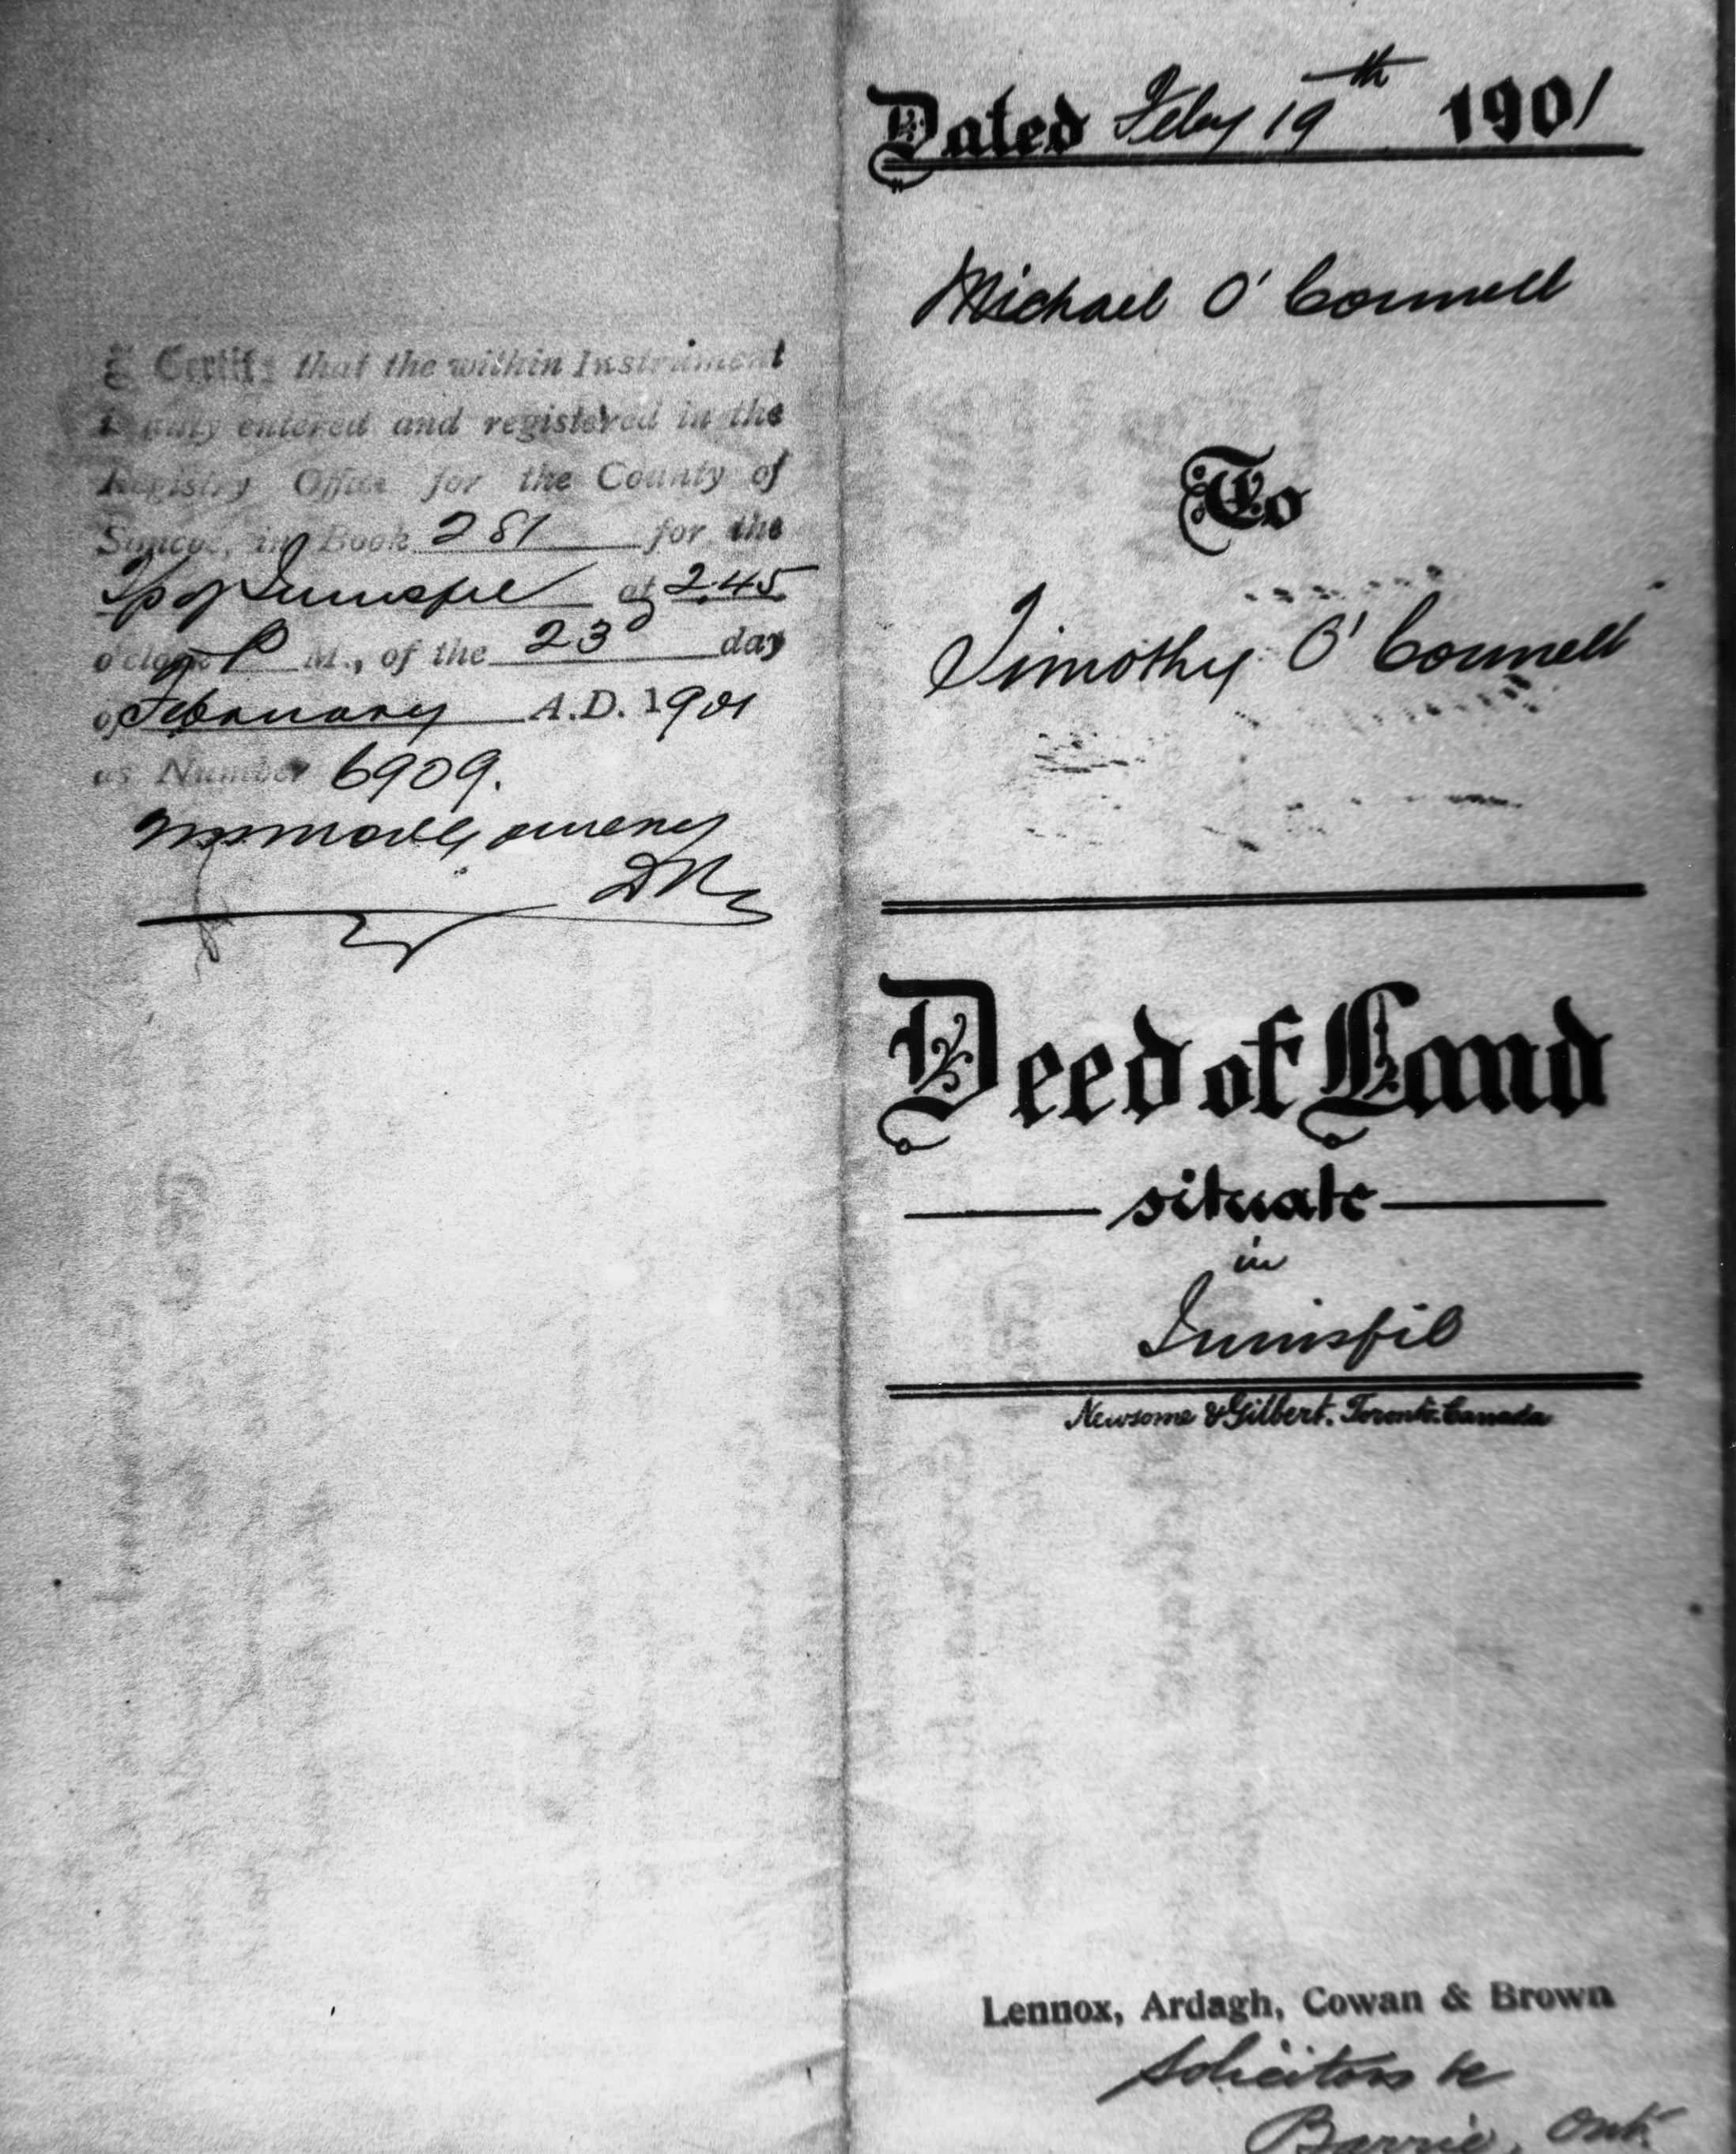 I Certify that the within Instrument
is duly entered and registered in the
Registry Office for the County of
Simcoe, in Book 281 for the
Tp of Innisfil at 2.45
o'clock P M., of the 23d day
of February A.D. 1901
as Number 6909.
DR
Dated Feby 19th 1901
Michael O'Connell
To
Timothy O'Connell
Deed of Land
situate
in
Innisfil
Newsome & Gilbert. Toronto. Canada
Lennox, Ardagh, Cowan & Brown
Solicitors &c
Barrie, Ont.